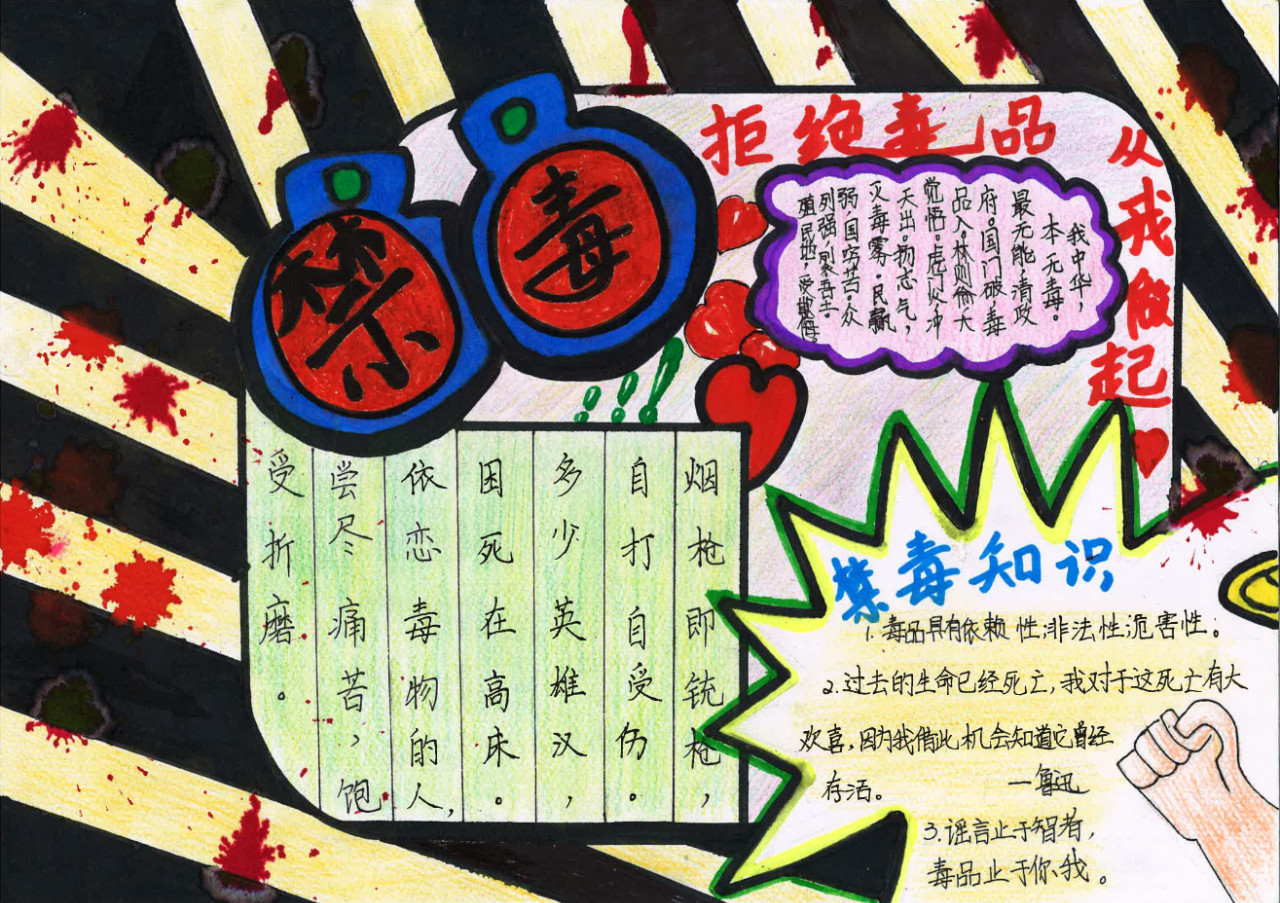 禁毒
拒绝毒品
从我做起
我中华，
本无毒。
最无能，清政
府。国门破，毒
品入。林则徐，大
觉悟。虎门火，冲
天出。扬志气，
灭毒雾。民
弱，国穷苦。众
列强，裂吾土。
殖民地，受
烟枪即铳枪，
自打自受伤。
多少英雄汉，
困死在高床。
依恋毒物的人，
尝尽痛苦，饱
受折磨。
禁毒知识
1.毒品具有依赖性，非法性，危害性。
2.过去的生命已经死亡，我对于这死亡有大
欢喜，因为我借此机会知道它曾经
存活。
—鲁迅
3.谣言止于智者，
毒品止于你我。